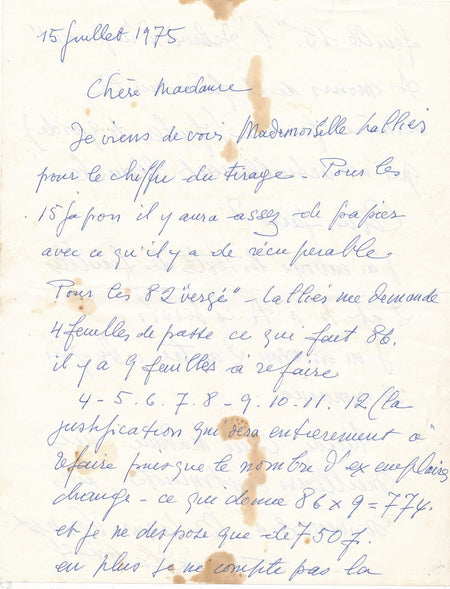 15 Juillet 1975
Chère Madame
Je viens de voir Mademoiselle Lalliés
pour le chiffre du tirage - Pour les
15 japon il y aura assez de papier
avec ce qu'il y a de récupérable.
Pour les 82 "vergé" - Lalliés me demande
4 feuilles de passe ce qui fait 86.
il y a 9 feuilles à refaire
4 - 5. 6. 7. 8 - 9. 10 - 11. 12 (la
justification qui sera entierement à
refaire puisque le nombre d'exemplaires
change - ce que donne 86 x 9 = 774.
et je ne dispose que de 750 f.
en plus je ne compte pas la